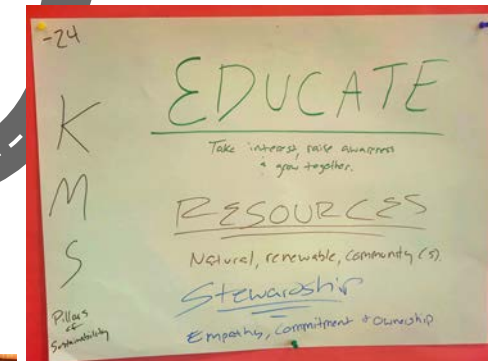 -24
K
M
S
Pillars
of
Sustainability
EDUCATE
Take interest, raise awareness
& grow together.
RESOURCES
Natural, renewable, community (s).
Stewardship
Empathy, Commitment & Ownership